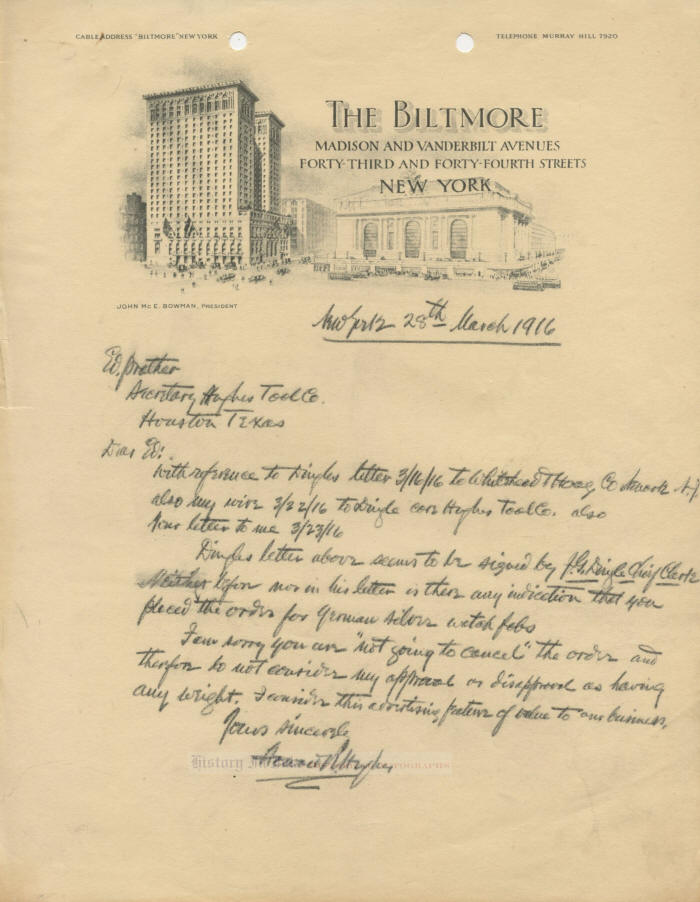 CABLE ADDRESS "BILTMORE" NEW YORK
TELEPHONE MURRAY HILL 7920
THE BILTMORE
MADISON AND VANDERBILT AVENUES
FORTY-THIRD AND FORTY-FOURTH STREETS
NEW YORK
JOHN McE. BOWMAN, PRESIDENT
New York 28th March 1916
Ed. Prather
Secretary Hughes Tool Co.
Houston Texas
Dear Ed:
With reference to Dingles letter 3/16/16 to Whitehead & Hoag Co Newark N.J.
also my wire 3/22/16 to Dingle care Hughes Tool Co. also
Your letter to me 3/23/16
Dingles letter above seems to be signed by J.G. Dingle Chief Clerk
Neither before nor in his letter is there any indiction that you
placed the order for German silver watch fobs
I am sorry you are "not going to cancel" the order and
therfore do not consider my approval or disapproval as having
any weight. I consider this advertising feature of value to our business.
Yours sincerely
Howard R. Hughes
History